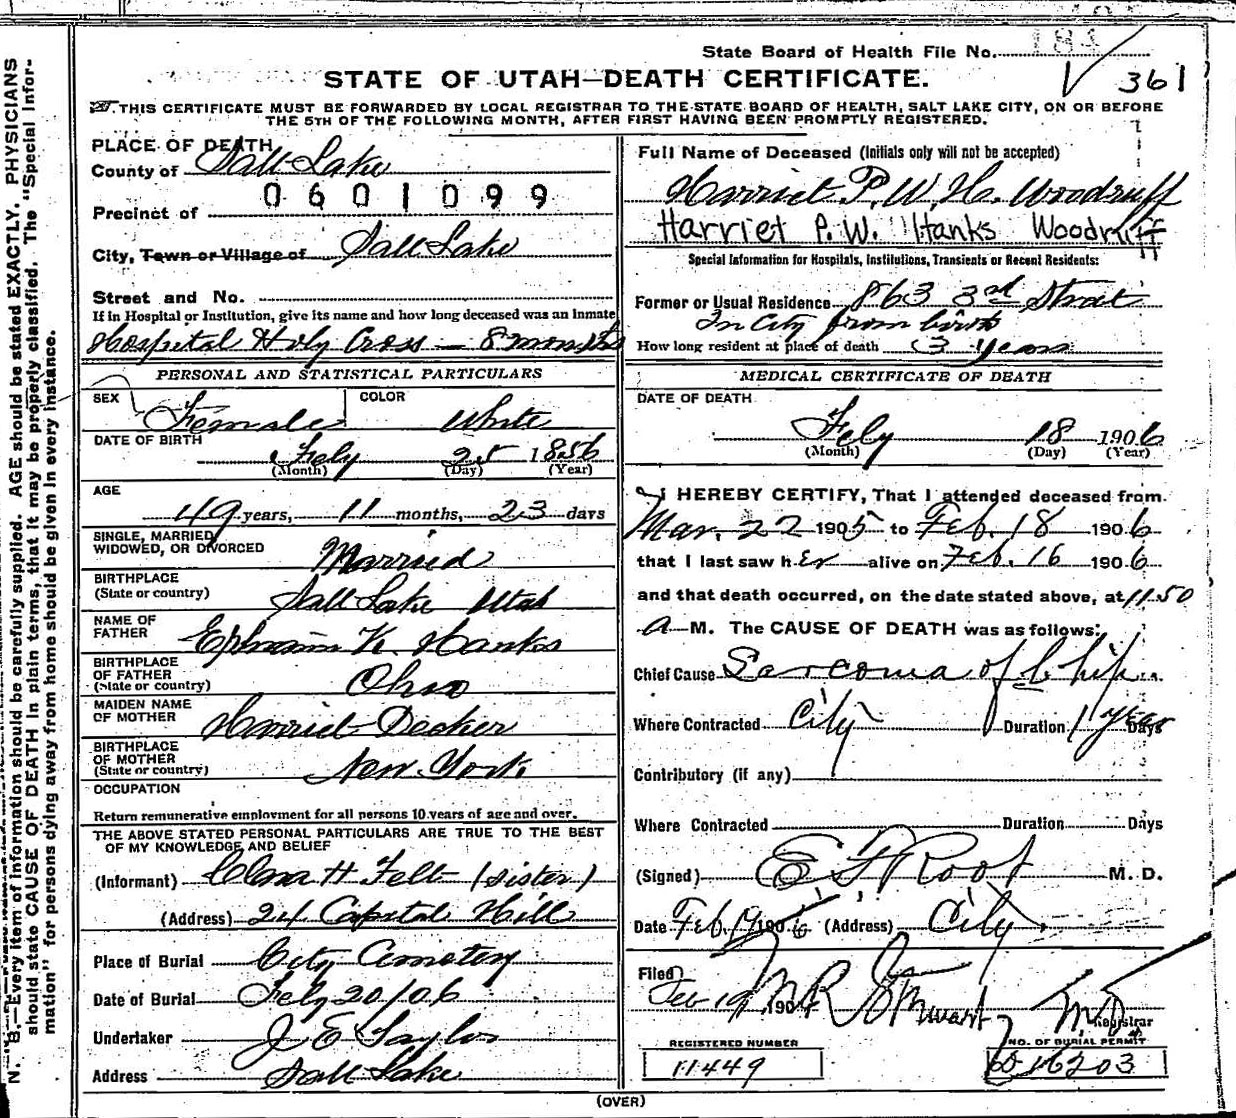 State Board of Health File No. 184
361
STATE OF UTAH—DEATH CERTIFICATE.
THIS CERTIFICATE MUST BE FORWARDED BY LOCAL REGISTRAR TO THE STATE BOARD OF HEALTH, SALT LAKE CITY, ON OR BEFORE
THE 5TH OF THE FOLLOWING MONTH, AFTER FIRST HAVING BEEN PROMPTLY REGISTERED.
PLACE OF DEATH
County of Salt Lake
0601099
Precinct of
City, Town or Village of Salt Lake
Street and No.
If in Hospital or Institution, give its name and how long deceased was an Inmate
Hospital Holy Cross — 8 months
PERSONAL AND STATISTICAL PARTICULARS
SEX Female
COLOR White
DATE OF BIRTH
Feby 25 1856
(Month) (Day) (Year)
AGE
49 years, 11 months, 23 days
SINGLE, MARRIED,
WIDOWED, OR DIVORCED Married
BIRTHPLACE
(State or country) Salt Lake Utah
NAME OF
FATHER Ephraim K. Hanks
BIRTHPLACE
OF FATHER
(State or country) Ohio
MAIDEN NAME
OF MOTHER Harriet Decker
BIRTHPLACE
OF MOTHER
(State or country) New York
OCCUPATION
Return remunerative employment for all persons 10 years of age and over.
THE ABOVE STATED PERSONAL PARTICULARS ARE TRUE TO THE BEST
OF MY KNOWLEDGE AND BELIEF
(Informant) H Felt (sister)
(Address) 24 Capital Hill
Place of Burial City Cemetery
Date of Burial Feby 20/06
Undertaker J E Taylor
Address Salt Lake
Full Name of Deceased (Initials only will not be accepted)
Harriet P. W. H. Woodruff
Harriet P. W. Hanks Woodruff
Special Information for Hospitals, Institutions, Transients or Recent Residents:
Former or Usual Residence 863 3rd Street
In City from birth
How long resident at place of death 3 years
MEDICAL CERTIFICATE OF DEATH
DATE OF DEATH
Feby 18 1906
(Month) (Day) (Year)
I HEREBY CERTIFY, That I attended deceased from
Mar. 22 1905 to Feb. 18 1906
that I last saw her alive on Feb. 16 1906
and that death occurred, on the date stated above, at 11.50
A M. The CAUSE OF DEATH was as follows:
Chief Cause Sarcoma of hip
Where Contracted City Duration 1 year Days
Contributory (if any)
Where Contracted Duration Days
(Signed) E F Root M. D.
Date Feb. 19 1906 (Address) City.
Filed
Feb 19 1906 M R Stewart M D
Registrar
REGISTERED NUMBER
11449
NO. OF BURIAL PERMIT
16203
(OVER)
N. B.—Every item of information should be carefully supplied. AGE should be stated EXACTLY. PHYSICIANS
should state CAUSE OF DEATH in plain terms, that it may be properly classified. The "Special Infor-
mation" for persons dying away from home should be given in every instance.